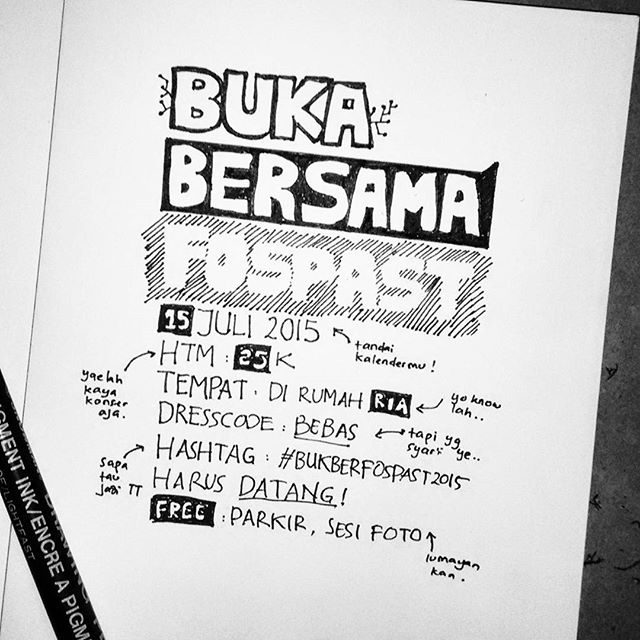 BUKA
BERSAMA
FOSPAST
15 JULI 2015
tandai
kalendermu !
HTM : 25 K
yaelah
kaya
konser
aja.
TEMPAT : DI RUMAH RIA
yo know
lah..
DRESSCODE : BEBAS
tapi yg
syar'i ye..
HASHTAG : #BUKBERFOSPAST2015
sapa
tau
jadi TT
HARUS DATANG !
FREE : PARKIR, SESI FOTO
lumayan
kan.
PIGMENT INK/ENCRE A PIGM